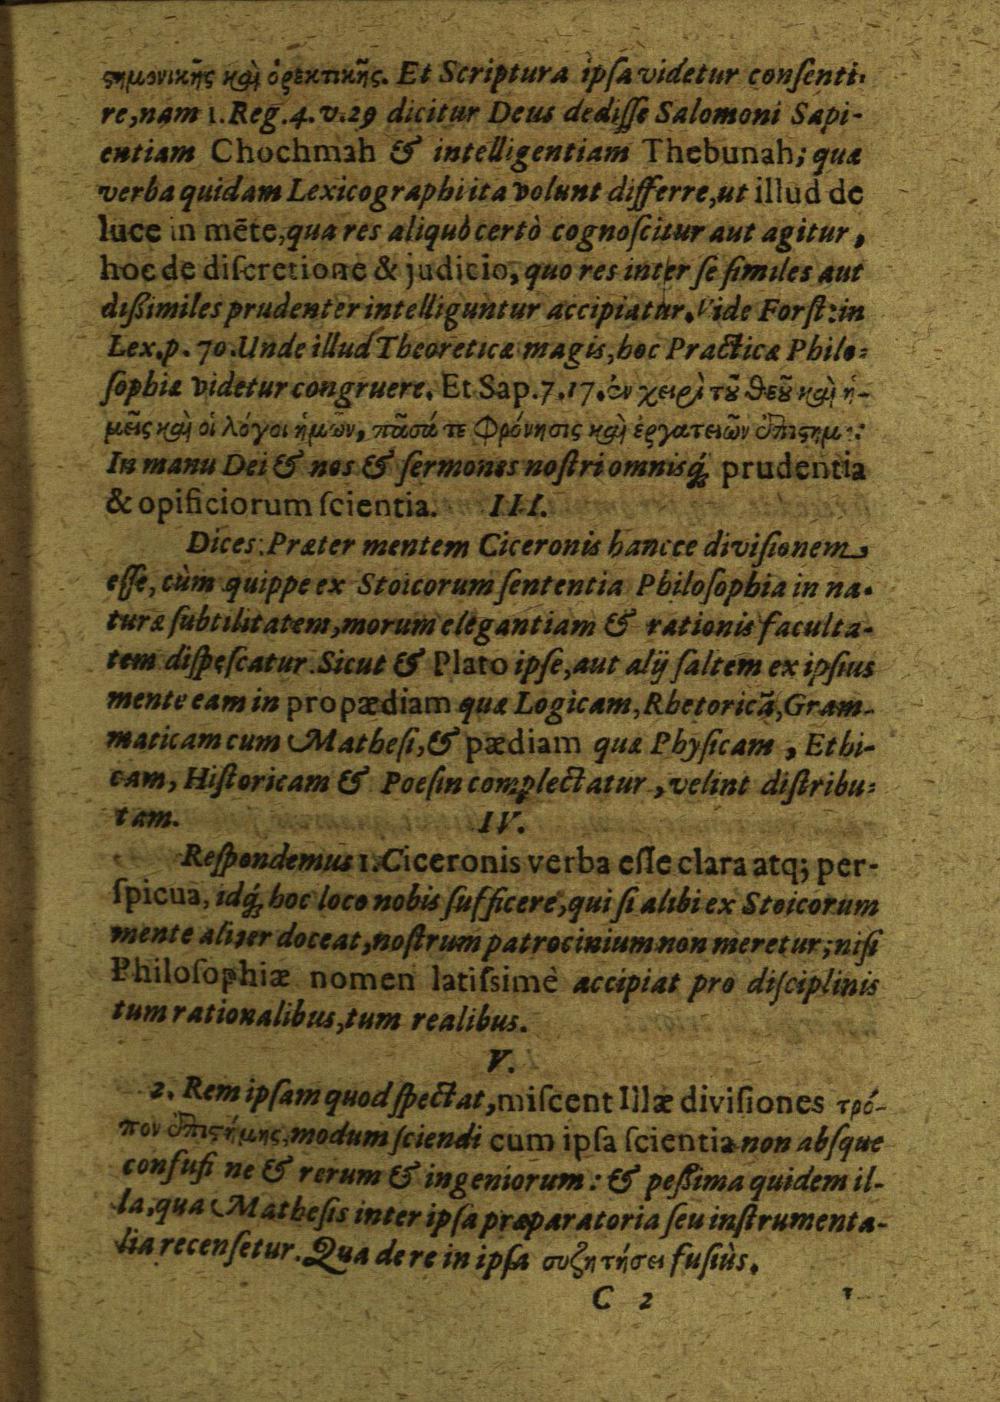 ϛημονικῆς καὶ ὀρεκτικῆς. Et Scriptura ipſa videtur conſenti-
re, nam 1. Reg. 4. v. 29 dicitur Deus dediſſe Salomoni Sapi-
entiam Chochmah & intelligentiam Thebunah; quæ
verba quidam Lexicographi ita volunt differre, ut illud de
luce in mẽte, qua res aliquò certò cognoſcitur aut agitur,
hoc de diſcretione & judicio, quo res inter ſe ſimiles aut
diſſimiles prudenter intelliguntur accipiatur. Vide Forſt: in
Lex. p. 70. Unde illud Theoreticæ magis, hoc Practicæ Philo-
ſophiæ videtur congruere. Et Sap. 7. 17. ἐν χειρὶ τȣ͂ θεȣ͂ καὶ ἡ-
μεῖς καὶ οἱ λόγοι ἡμῶν, πᾶσά τε Φρόνησις καὶ ἐργατειῶν ἐπιϛημ
In manu Dei & nos & ſermones noſtri omnisq́; prudentia
& opificiorum ſcientia. III.
Dices: Præter mentem Ciceronis hancce diviſionem
eſſe, cùm quippe ex Stoicorum ſententia Philoſophia in na-
turæ ſubtilitatem, morum elegantiam & rationis faculta-
tem diſpeſcatur. Sicut & Plato ipſe, aut alij ſaltem ex ipſius
mente eam in propædiam quæ Logicam, Rhetoricã, Gram-
maticam cum Matheſi, & pædiam quæ Phyſicam, Ethi-
cam, Hiſtoricam & Poeſin complectatur, velint diſtribu-
tam. IV.
Reſpondemus 1. Ciceronis verba eſſe clara atq; per-
ſpicua, idq́; hoc loco nobis ſufficere, qui ſi alibi ex Stoicorum
mente aliter doceat, noſtrum patrocinium non meretur; niſi
Philoſophiæ nomen latiſsimè accipiat pro diſciplinis
tum rationalibus, tum realibus.
V.
2. Rem ipſam quod ſpectat, miſcent Illæ diviſiones τρό-
πον ἐπιϛήμης, modum ſciendi cum ipſa ſcientia non abſque
confuſi ne & rerum & ingeniorum: & peſſima quidem il-
la, qua Matheſis inter ipſa præparatoria ſeu inſtrumenta-
lia recenſetur. Qua de re in ipſa συζητήσει fuſiùs.
C 2